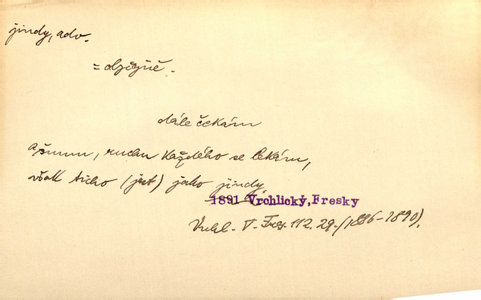 jindy, adv.
= obyčejně.
dále čekám
a šumu, ruchu každého se lekám,
však ticho (jest) jako jindy
1891 Vrchlický, Fresky
Vrchl. V. Fres. 112. 29. (1886-1890).